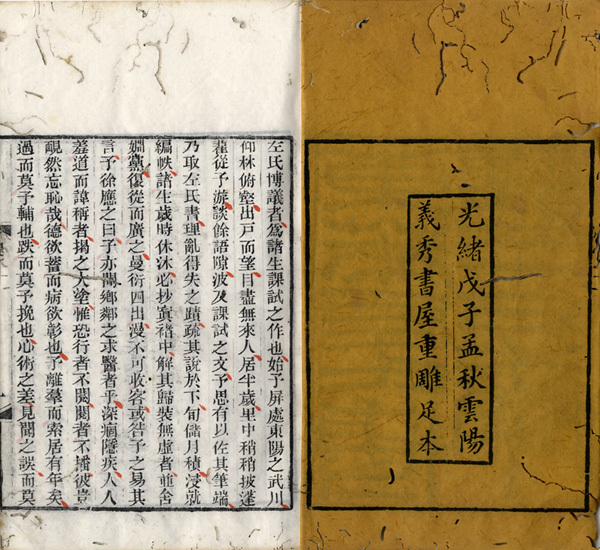 光緒戊子孟秋雲陽
義秀書屋重雕足本
左氏博議者爲諸生課試之作也始予屏處東陽之武川
仰林俯壑出戸而望目盡無來人居半歲里中稍稍披蓬
藋從予游談餘語隙波及課試之文予思有以佐其筆端
乃取左氏書理亂得失之蹟疏其說於下旬儲月積浸就
編帙諸生歲時休沐必抄寘褚中解其歸裝無虛者並舍
姻黨復從而廣之曼衍四出漫不可收客或咎予之易其
言予徐應之曰子亦聞鄉鄰之求醫者乎深痼隱疾人人
羞道而諱稱者揭之大塗惟恐行者不閱閱者不播彼豈
靦然忘恥哉德欲蓄而病欲彰也予離羣而索居有年矣
過而莫予輔也跌而莫予挽也心術之差見聞之誤而莫